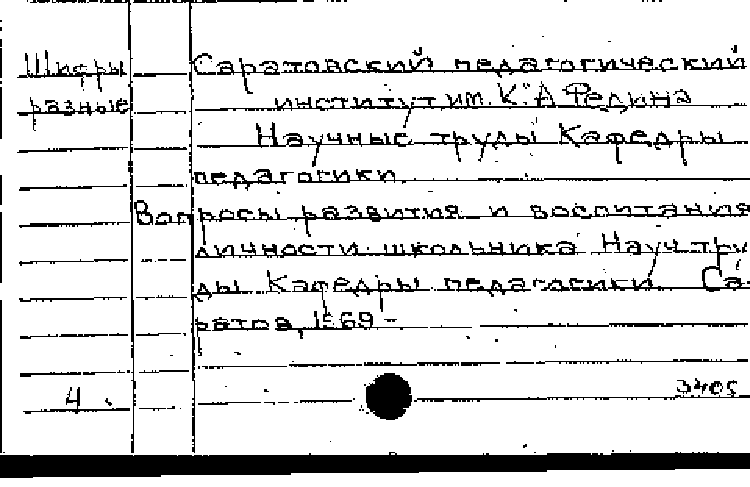 Шифры
разные
Саратовский педагогический
институт им. К. А. Федина
Научные труды Кафедры
педагогики.
Вопросы развития и воспитания
личности школьника Науч. тру
ды Кафедры педагогики. Са-
ратов, 1969 -
4
3405